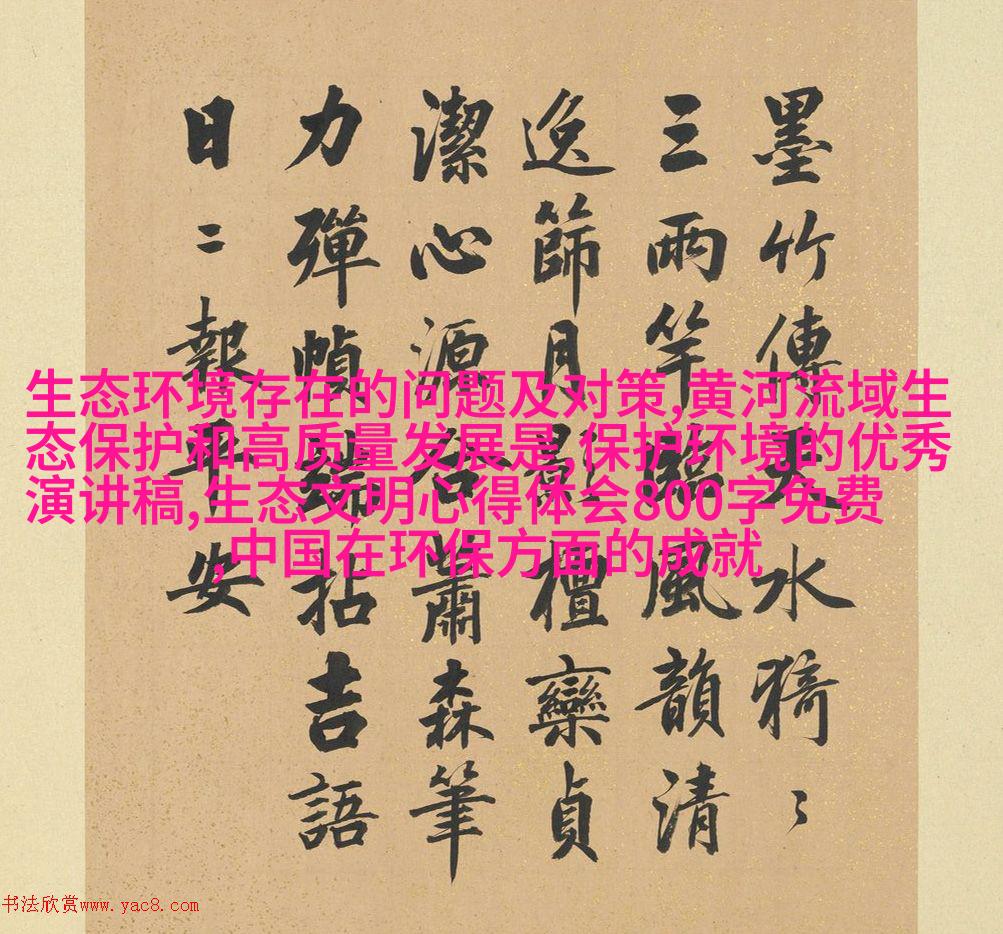 墨竹傳水猗〻
三兩竿臨風韻清
逸篩月影檀欒貞
潔心源蕭森筆
力彈幀端拈吉語
日二報平安
生态环境存在的问题及对策,黄河流域生
态保护和高质量发展是,保护环境的优秀
演讲稿,生态文明心得体会800字免费
,中国在环保方面的成就
书法欣赏www.yac8.com